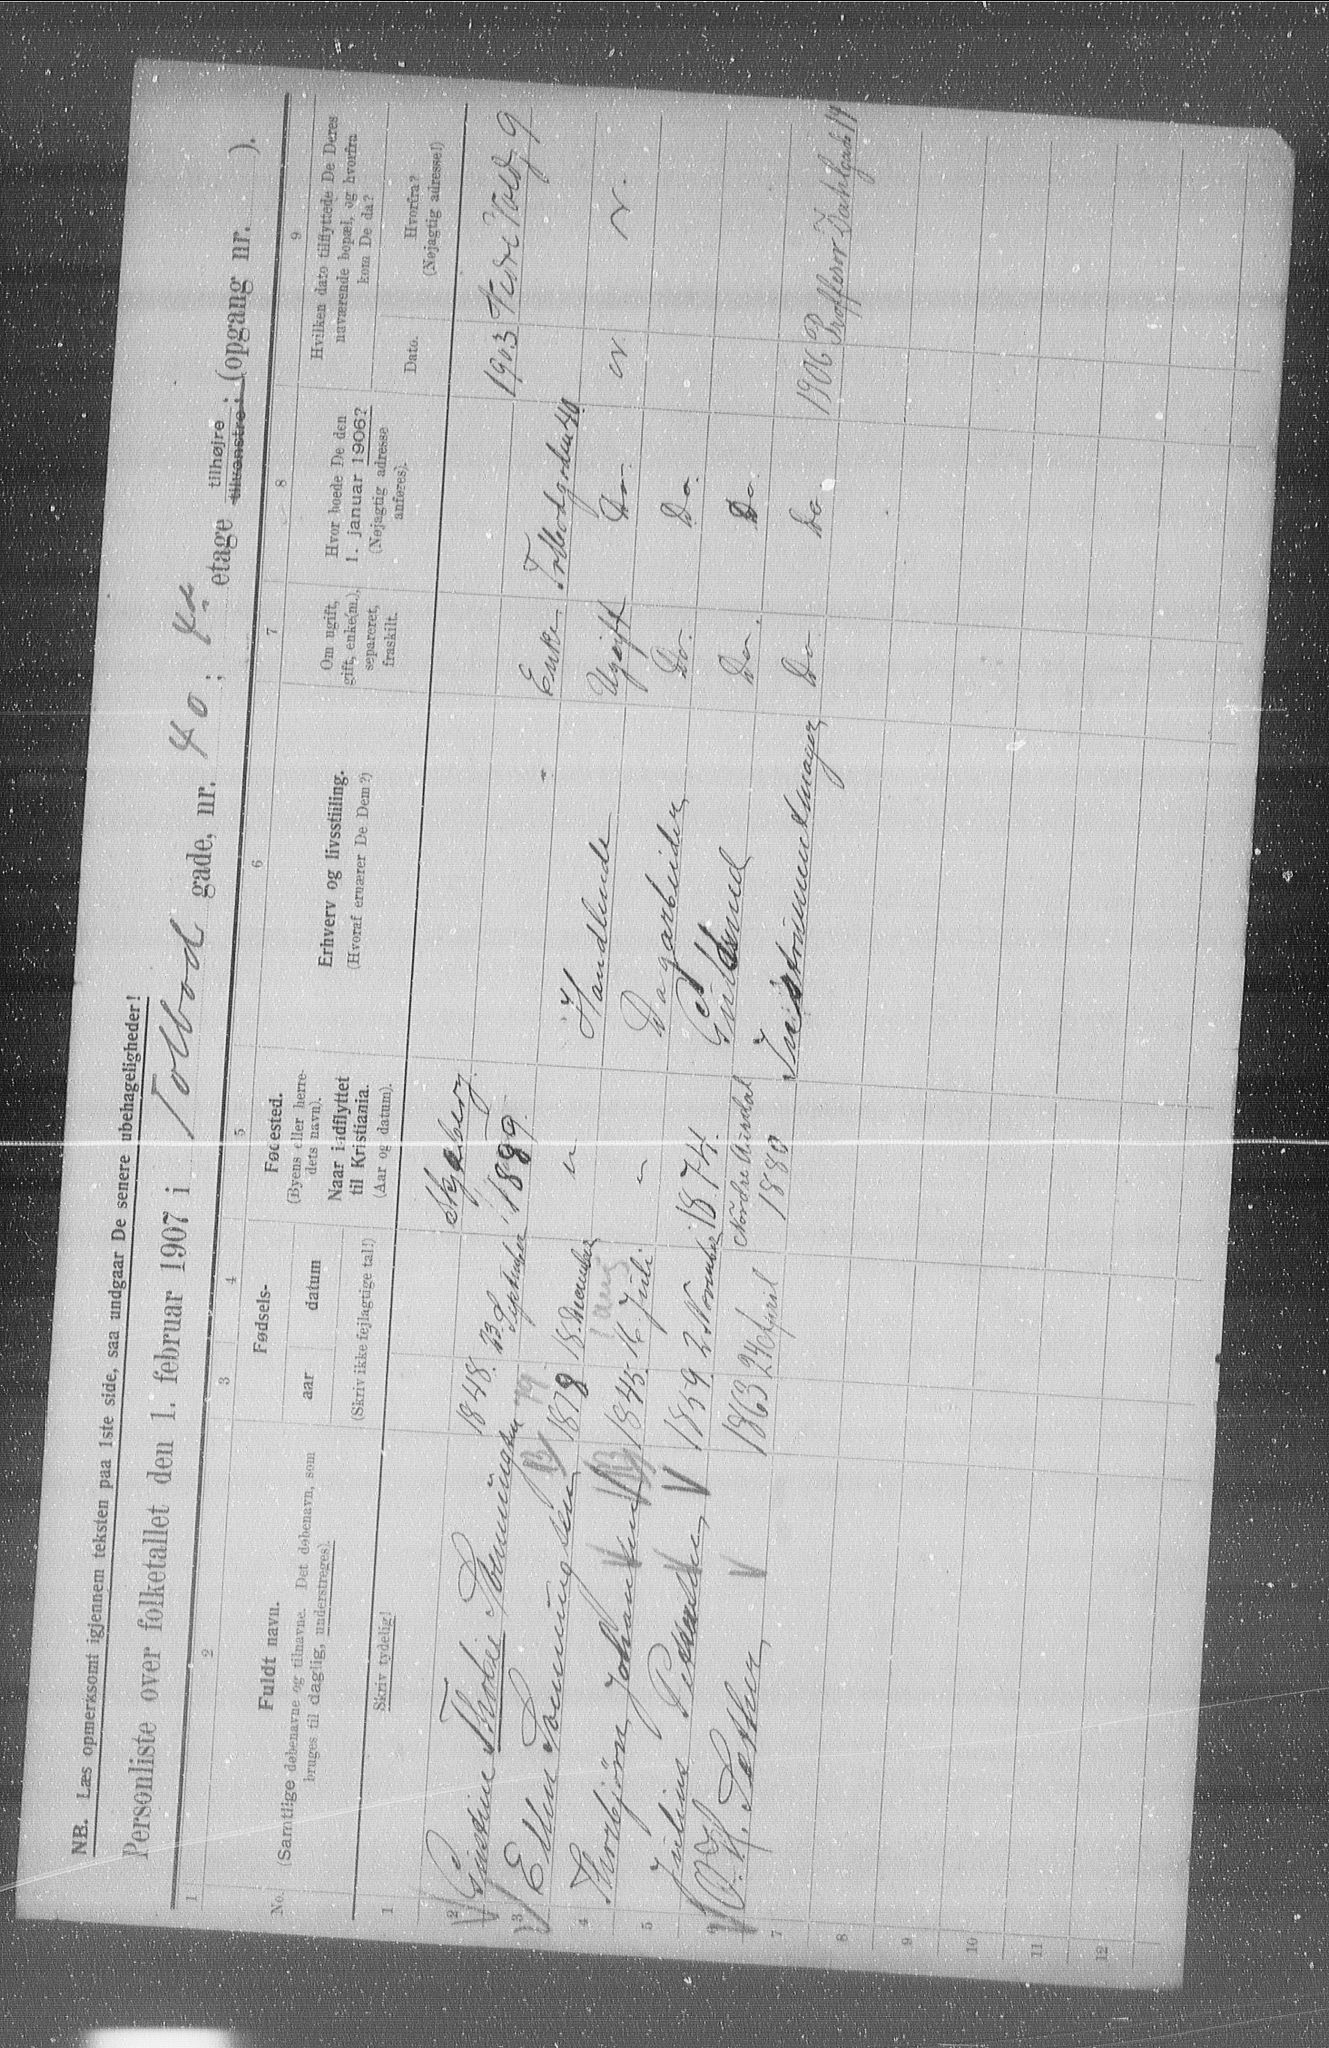 NB. Læs opmerksomt igjennem teksten paa 1ste side, saa undgaar De senere ubehageligheder!
Personliste over folketallet den 1. februar 1907 i Tolbod gade, nr. 40; 4de etage tilhøjre; tilvenstre; (opgang nr. ).
1 2 3 4 5 6 7 8 9
No.
Fuldt navn.
(Samtlige døbenavne og tilnavne. Det døbenavn, som
bruges til daglig, understreges).
Skriv tydelig!
Fødsels-
aar datum
(Skriv ikke fejlagtige tal!)
Fødested.
(Byens eller herre-
dets navn).
Naar indflyttet
til Kristiania.
(Aar og datum).
Erhverv og livsstilling.
(Hvoraf ernærer De Dem?)
Om ugift,
gift, enke(m.),
separeret,
fraskilt.
Hvor boede De den
1. januar 1906?
(Nøjagtig adresse
anføres).
Hvilken dato tilflyttede De Deres
nuværende bopæl, og hvorfra
kom De da?
Dato. Hvorfra?
(Nøjagtig adresse!)
1 Skjeberg.
2 Thoda Sonningsen 1848. 23. September 1889. Enke. Tolbodgaden 40. 1903 9
3 Ellen Sonningsen 1878 18. December " Handlende Ugift Do.
4 Thorbjörn Johansen 1845. 16. Juli. " Dagarbeider Do. Do.
5 Julius Pettersen 1859 2 November 1874. Do. Do.
6 Sæther 1863 24 April Nordre Aurdal
1880 Instrumentmager Do. Do. 1906 Proffesor Dahlsgade 14
7
8
9
10
11
12